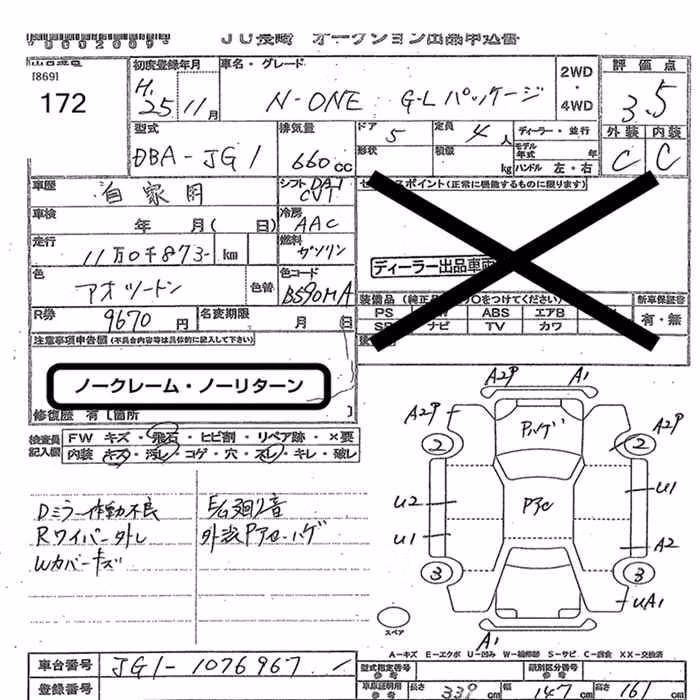 JU長崎 オークション出品申込書
[869]
172
初度登録年月
H. 25 11月
車名・グレード
N-ONE G・Lパッケージ
2WD ・ 4WD
評価点
3.5
外装 内装
C C
型式
DBA-JG1
排気量
660cc
ドア 5
定員 4人
ディーラー・並行
モデル年式 年
形状
積載 kg
ハンドル 左・右
車歴 自家用
シフト DAI CVT
車検 年 月( 日)
冷房 AAC
走行 11万0千873- km
燃料 ガソリン
色 アオツートン
色替
色コード B590MA
R券 9670円
名変期限 月 日
セールスポイント(正常に機能するものに限ります)
ディーラー出品車両
装備品
新車保証書
PS ABS エアB
ナビ TV カワ
有・無
注意事項申告欄 (不具合内容等は具体的に記入して下さい)
ノークレーム・ノーリターン
修復歴 有 [箇所 ]
検査員記入欄
FW キズ・飛石・ヒビ割・リペア跡・×要
内装 キズ・汚レ・コゲ・穴・スレ・キレ・破レ
Dミラー作動不良
Rワイパー外し
Wカバーキズ
外装Pアセ・ハゲ
A2P A1
A2P A2P
Pハゲ
2 2
U2 U1
U1 A2
3 3
UA1
A1
スペア
A−キズ E−エクボ U−凹み W−補修跡 S−サビ C−腐食 XX−交換済
車台番号 JG1-1076967
登録番号
型式指定番号 参考
類別区分番号 参考
車庫証明用参考
長さ 339cm 幅 147cm 高さ 161cm